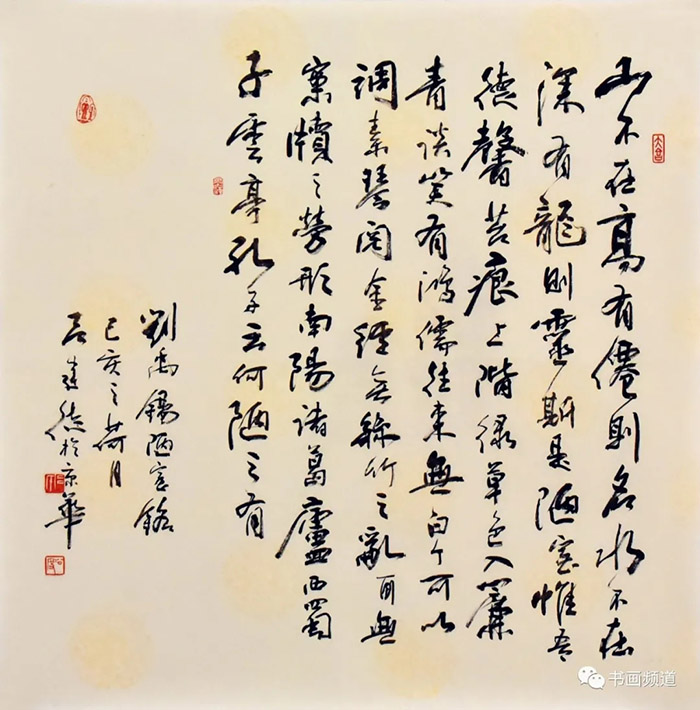 山不在高有僊則名水不在
深有龍則靈斯是陋室惟吾
德馨苔痕上階綠草色入簾
青談笑有鴻儒往來無白丁可以
調素琴閱金經無絲竹之亂耳無
案牘之勞形南陽諸葛廬西蜀
子雲亭孔子云何陋之有
劉禹錫陋室銘
己亥之荷月
德於京華
书画频道